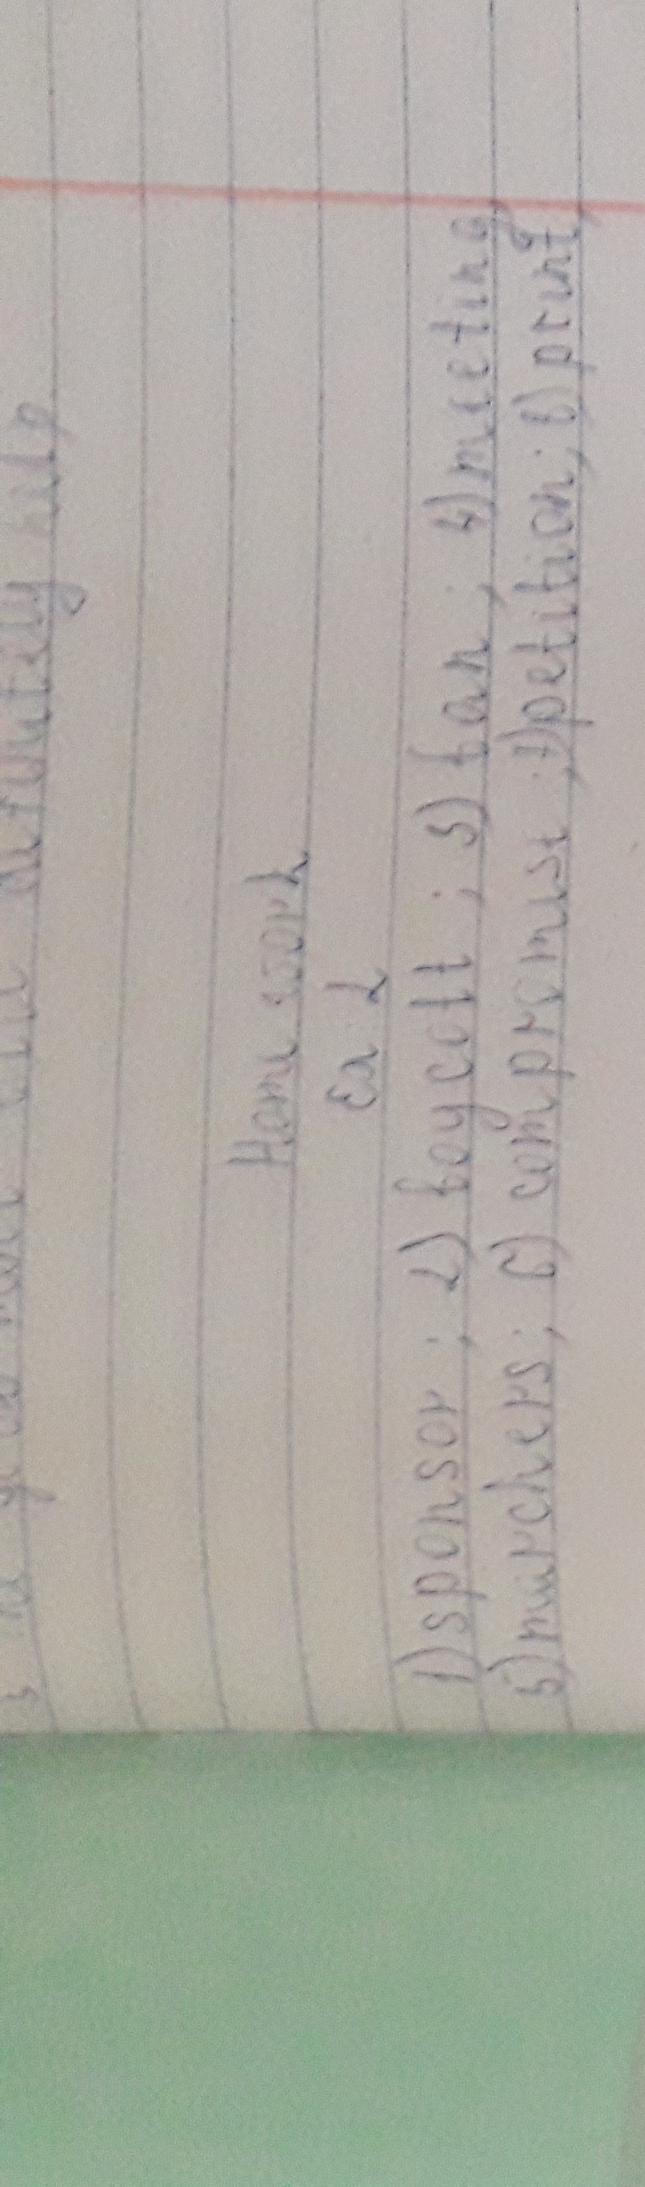 help
Home work
Ex 2
1) sponsor ; 2) boycott ; 3) ban ; 4) meeting
5) marchers ; 6) compromise ; 7) petition ; 8) print